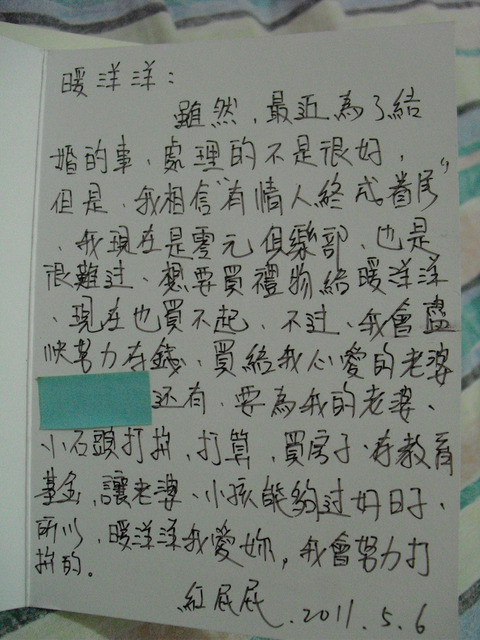 暖洋洋：
雖然，最近為了結
婚的事，處理的不是很好，
但是，我相信“有情人終成眷屬”
，我現在是零元俱樂部，也是
很難过，想要買禮物給暖洋洋
，現在也買不起，不过，我會盡
快努力存錢，買給我心愛的老婆
还有，要為我的老婆、
小石頭打拚，打算，買房子，存教育
基金，讓老婆、小孩能夠过好日子，
所以，暖洋洋我愛妳，我會努力打
拚的。
紅屁屁．2011．5．6